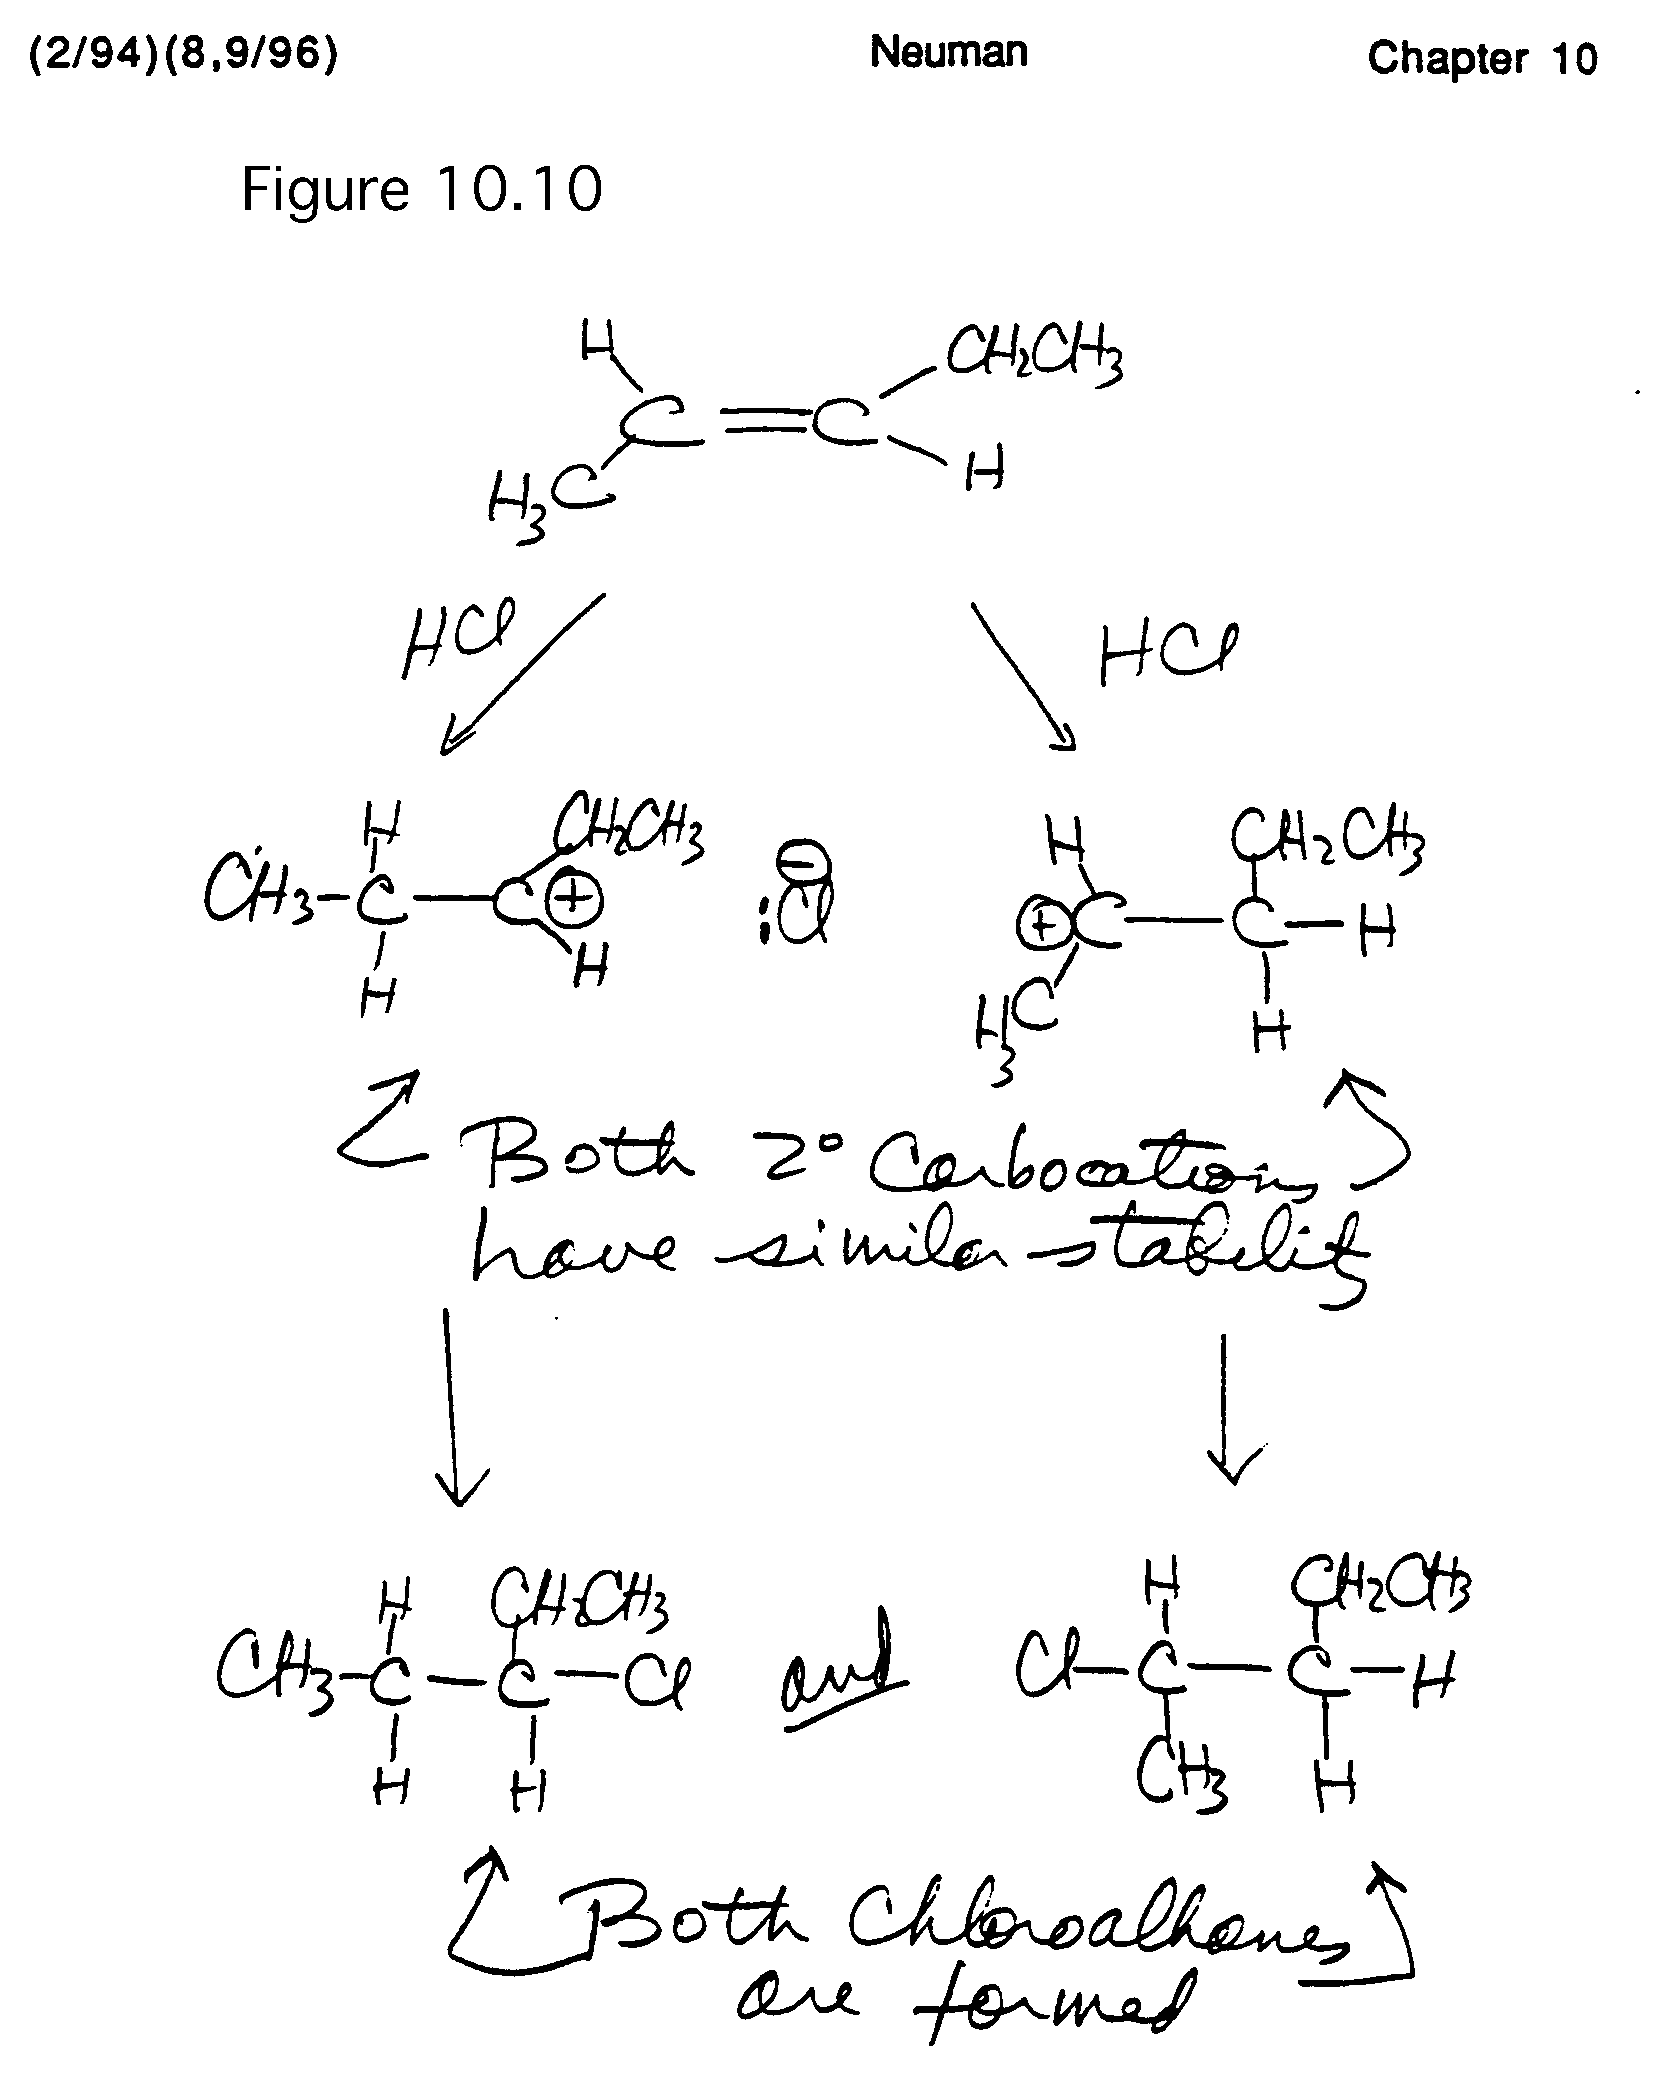 (2/94)(8,9/96) Neuman Chapter 10
Figure 10.10
H CH2CH3
C = C
H3C H
HCl HCl
H CH2CH3 ⊖ H CH2CH3
CH3-C-C⊕ :Cl ⊕C-C-H
H H H3C H
Both 2° Carbocations
have similar stability
H CH2CH3 H CH2CH3
CH3-C-C-Cl and Cl-C-C-H
H H CH3 H
Both Chloroalkanes
are formed